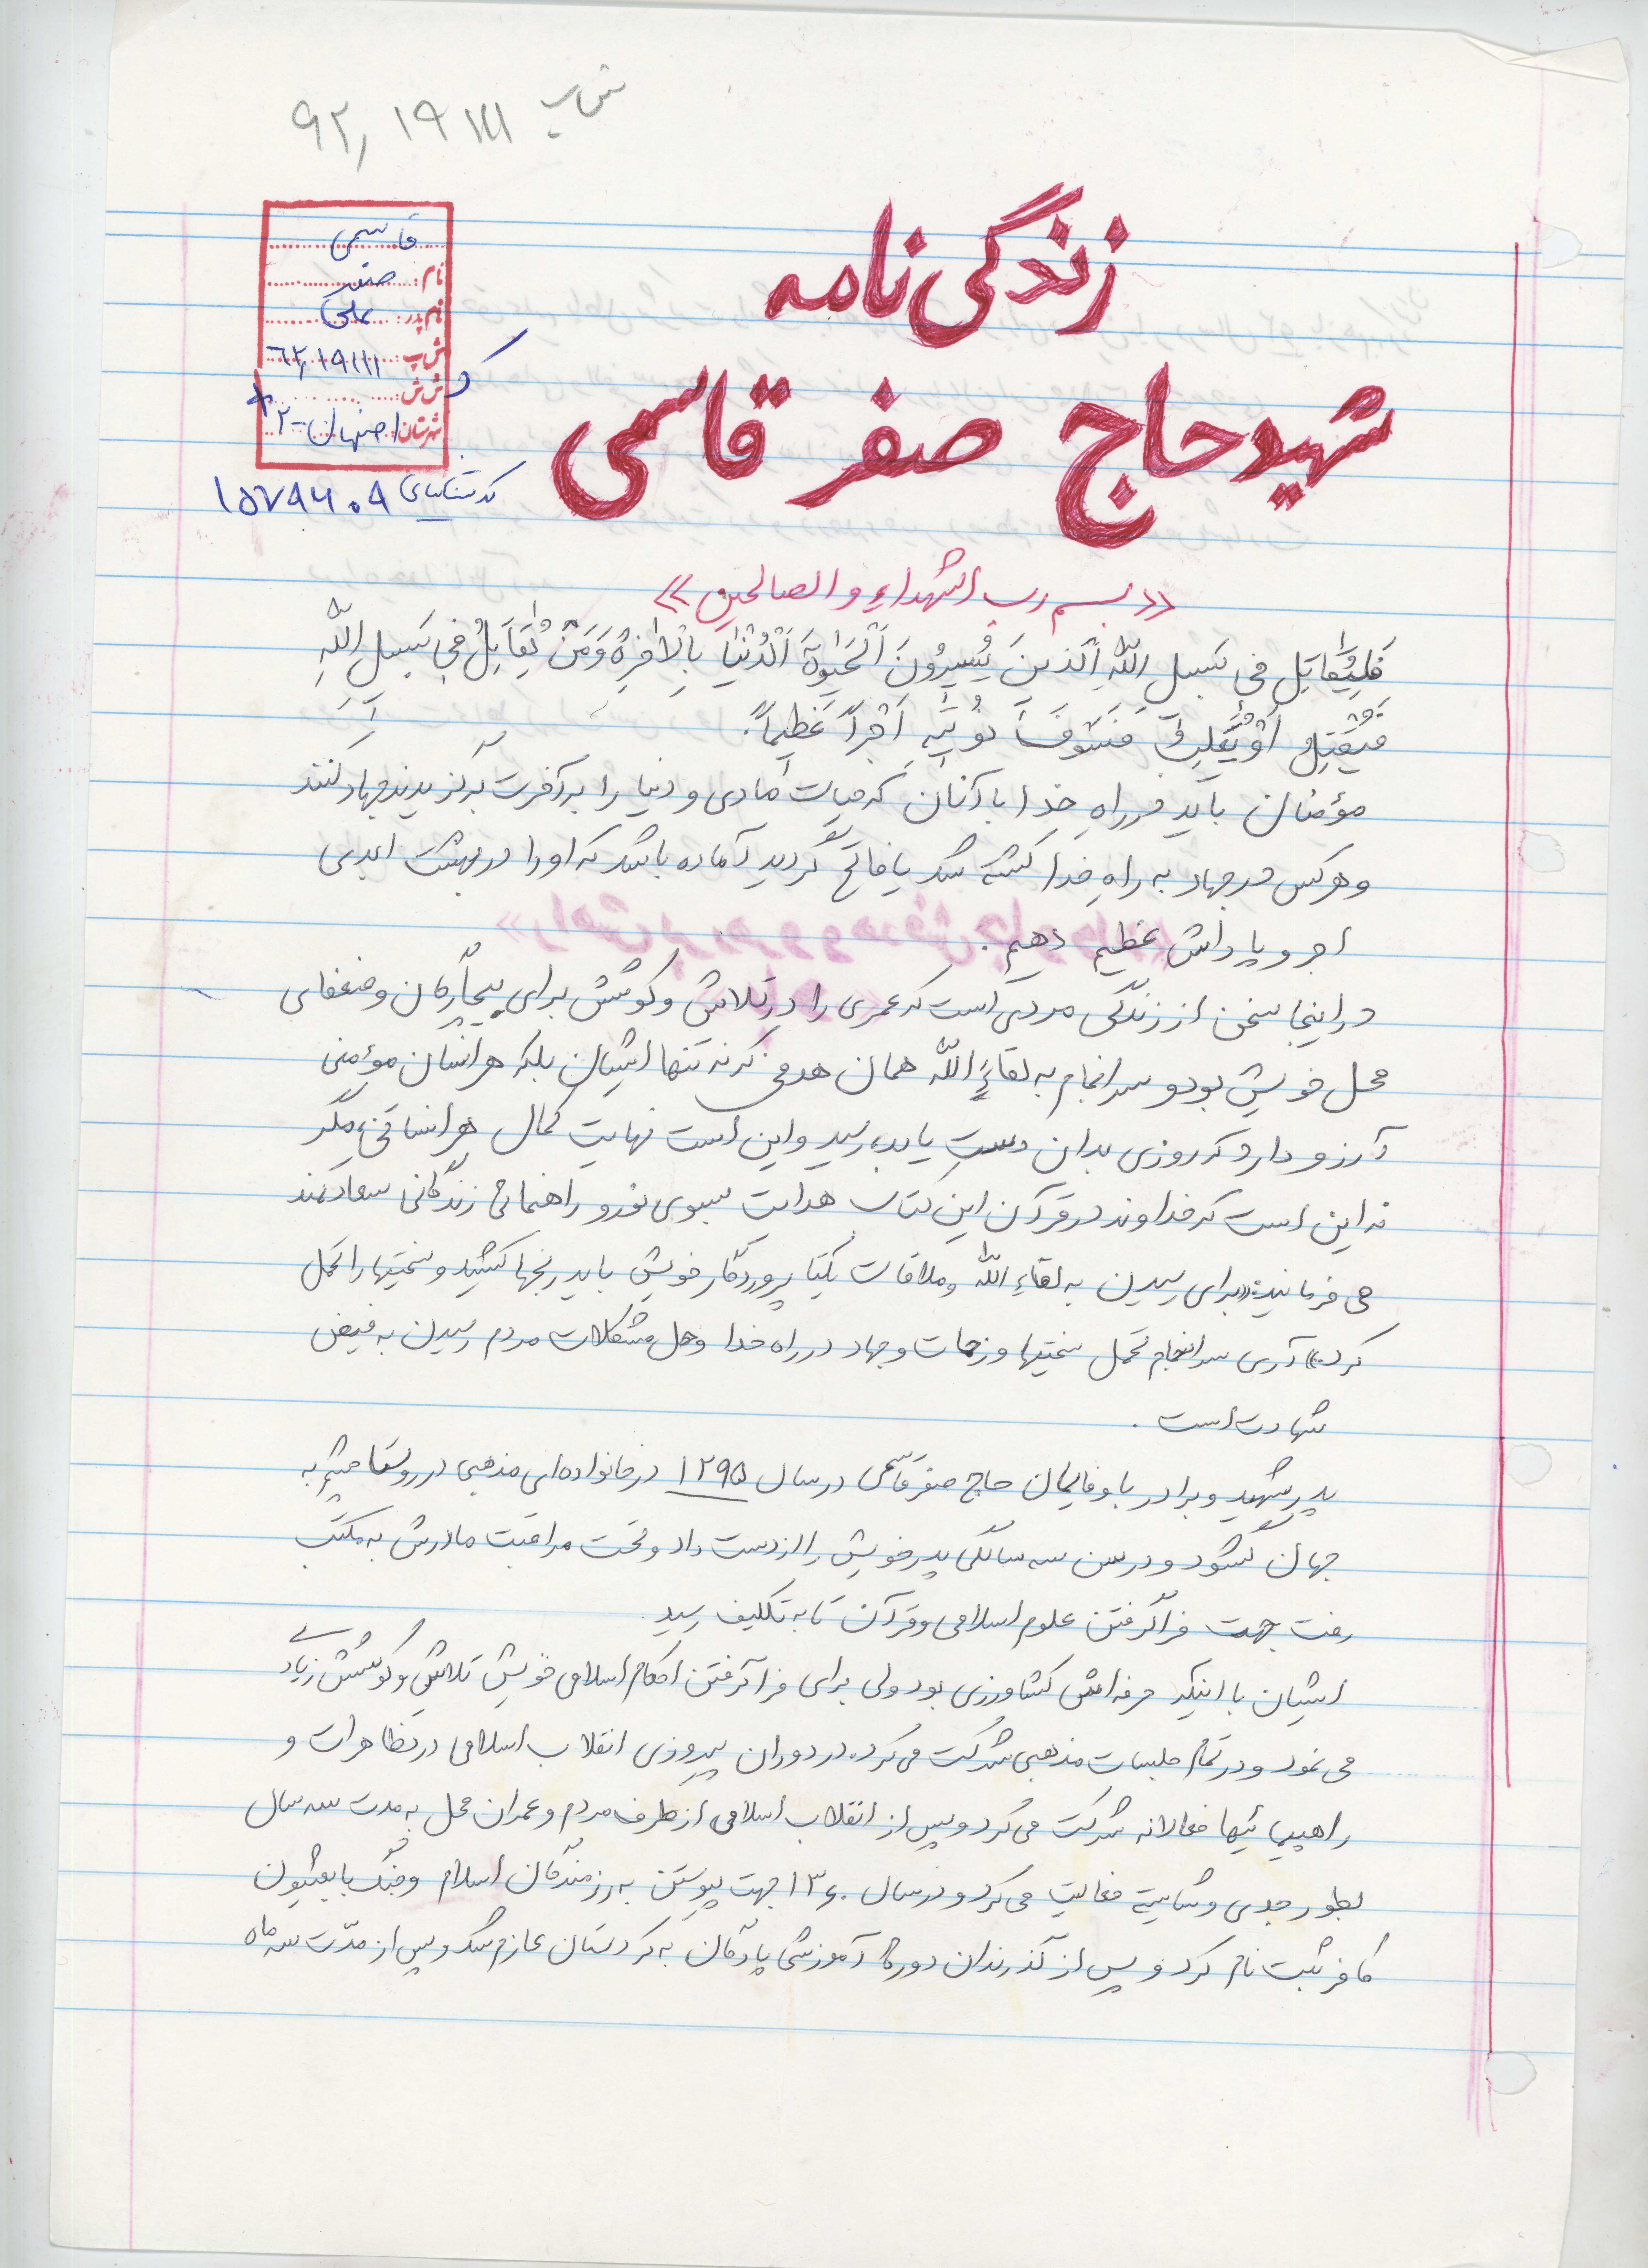 ش پ
قاسمی
نام: صفر
نام پدر: علی
ش پ: ٦٢,١٩١١١
ش ش:
شهرستان: اصفهان-٢
کد شناسایی ١٥٧٨٩٦٠٩
زندگی نامه
شهید حاج صفر قاسمی
«بسم رب الشهداء و الصالحین»
فَلیُقاتِل فی سَبیلِ اللّهِ الَّذینَ الْحَیوةَ الدُّنْیا بِالاخِرَةِ وَ مَنْ یُقاتِلْ فی سَبیل اللّهِ
فَیُقْتَل اَوْ یَغْلِبْ فَسَوفَ نُؤتیَهِ اَجْراً عَظیماً.
مؤمنان باید در راهِ خدا با آنان که حیات مادی و دنیا را بر آخرت برگزیدند جهاد کنند
و هر کس در جهاد به راهِ خدا کشته شد یا فاتح گردید آماده باشد که او را در بهشت ابدی
اجر و پاداش عظیم دهیم.
در اینجا سخن از زندگی مردی است که عمری را در تلاش و کوشش برای بیچارگان و ضعفای
محل خویش بود و سرانجام به لقاءِ اللّه همان هدفی که نه تنها ایشان بلکه هر انسان مؤمنی
آرزو دارد که روزی بدان دست یابد، رسید و این است نهایت کمال هر انسانی، مگر
نه این است که خداوند در قرآن این کتاب هدایت بسوی نور و راهنمای زندگانی سعادتمند
می فرمایند: «برای رسیدن به لقاءِ اللّه و ملاقات یکتا پروردگار خویش باید رنجها کشید و سختیها را تحمل
کرد» آری سرانجام تحمل سختیها و زحمات و جهاد در راه خدا و حل مشکلات مردم رسیدن به فیض
شهادت است.
پدر شهید و برادر با وفایمان حاج صفر قاسمی در سال ١٢٩٥ در خانواده ای مذهبی در روستا چشم به
جهان گشود و در سن سه سالگی پدر خویش را از دست داد و تحت مراقبت مادرش به مکتب
رفت جهت فرا گرفتن علوم اسلامی و قرآن تا به تکلیف رسید.
ایشان با اینکه حرفه اش کشاورزی بود ولی برای فرا گرفتن احکام اسلامی خویش تلاش و کوشش زیادی
می نمود و در تمام جلسات مذهبی شرکت می کرد. در دوران پیروزی انقلاب اسلامی در تظاهرات و
راهپیمائیها فعالانه شرکت می کرد و پس از انقلاب اسلامی از طرف مردم و عمران محل به مدت سه سال
بطور جدی و شایسته فعالیت می کرد و در سال ١٣٦٠ جهت پیوستن به رزمندگان اسلام و جنگ با بعثیون
کافر ثبت نام کرد و پس از گذراندن دوره آموزشی پادگان به کردستان عازم شد و پس از مدّت سه ماه